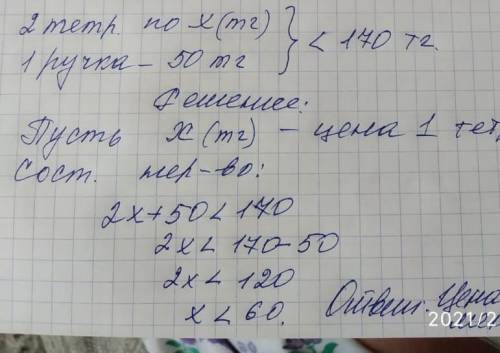 2 тетр. по х (тг)
1 ручка – 50 тг
< 170 тг.
Решение:
Пусть х (тг) – цена 1 тет
Сост. нер-во:
2х+50<170
2х<170-50
2х<120
х<60.
Ответ: Цена
2021/2